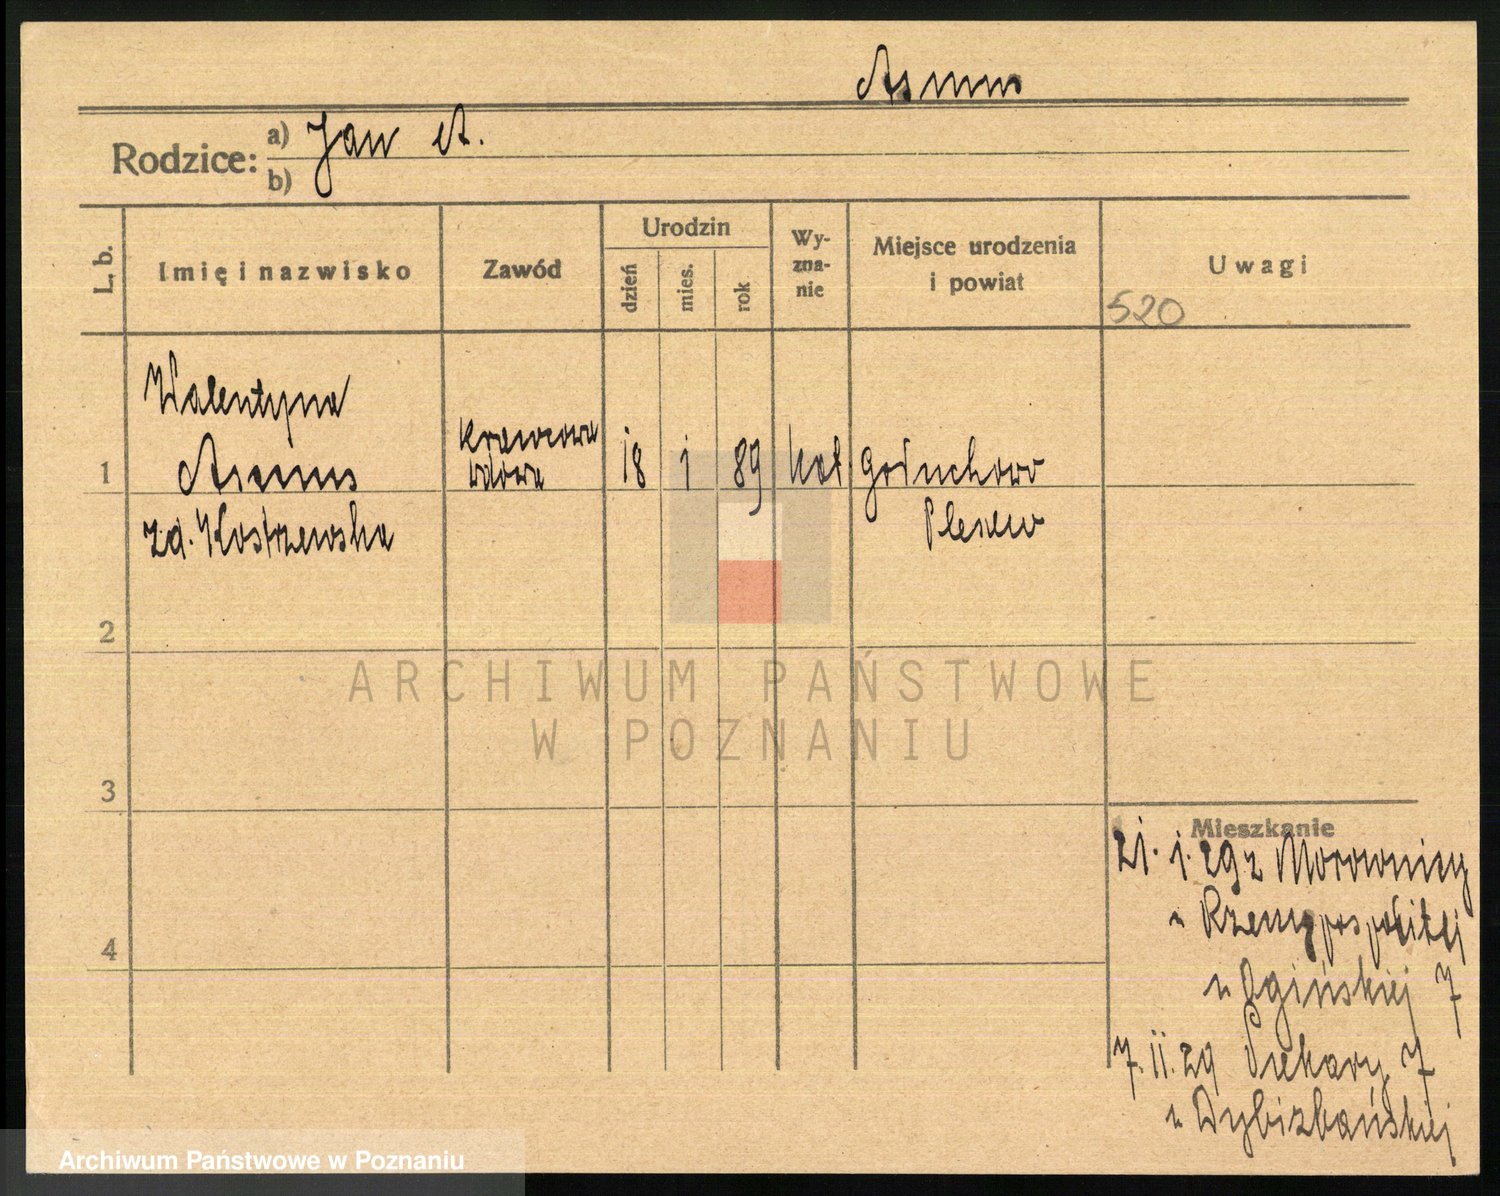 Asmus
Rodzice: a) Jan A.
b)
L. b.
Imię i nazwisko
Zawód
Urodzin
dzień
mies.
rok
Wy-
zna-
nie
Miejsce urodzenia
i powiat
Uwagi
520
Walentyna
Asmus
zd. Kostrzewska
krawcowa
wdowa
18 1 89 kat
Gołuchowo
Pleszew
1
2
3
4
Mieszkanie
21. 1. 29 z Morownicy
u Rzeczypospolitej
u Ogińskiej 7
7. II. 29 Piekary 7
u
ARCHIWUM PAŃSTWOWE
W POZNANIU
Archiwum Państwowe w Poznaniu